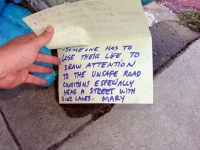 SOMEONE HAS TO
LOSE THEIR LIFE TO
DRAW ATTENTION
TO THE UNSAFE ROAD
CONDITIONS ESPECIALLY
NEAR A STREET WITH
BIKE LANES. MARY